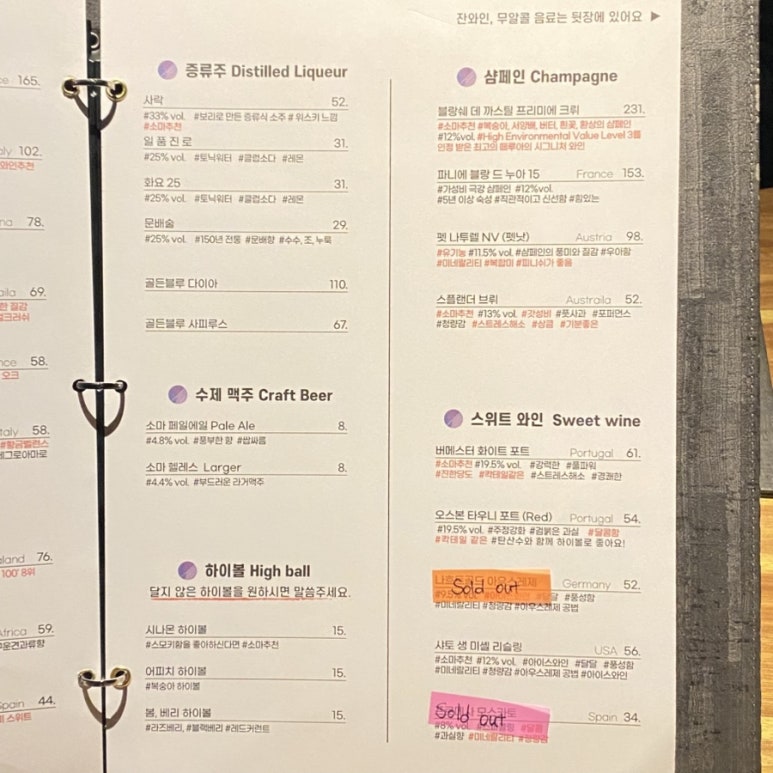 ce 165.
ly 102.
와인추천
na 78.
aila 69.
한 질감
크러쉬
nce 58.
오크
taly 58.
#황금밸런스
네그로아마로
land 76.
100' 8위
Africa 59.
Spain 44.
스위트
잔와인, 무알콜 음료는 뒷장에 있어요 ▶
증류주 Distilled Liqueur
사락 52.
#33% vol. #보리로 만든 증류식 소주 # 위스키 느낌
#소마추천
일 품 진 로 31.
#25% vol. #토닉워터 #클럽소다 #레몬
화요 25 31.
#25% vol. #토닉워터 #클럽소다 #레몬
문배술 29.
#25% vol. #150년 전통 #문배향 #수수, 조, 누룩
골든블루 다이아 110.
골든블루 사피루스 67.
수제 맥주 Craft Beer
소마 페일에일 Pale Ale 8.
#4.8% vol. #풍부한 향 #쌉싸름
소마 헬레스 Larger 8.
#4.4% vol. #부드러운 라거맥주
하이볼 High ball
달지 않은 하이볼을 원하시면 말씀주세요.
시나몬 하이볼 15.
#스모키함을 좋아하신다면 #소마추천
어피치 하이볼 15.
#복숭아 하이볼
봄, 베리 하이볼 15.
#라즈베리, #블랙베리 #레드커런트
샴페인 Champagne
블랑쉐 데 까스틸 프리미에 크뤼 231.
#소마추천 #복숭아, 서양배, 버터, 흰꽃, 환상의 샴페인
#12%vol. #High Environmental Value Level 3를
인정 받은 최고의 떼루아의 시그니처 와인
파니에 블랑 드 누아 15 France 153.
#가성비 극강 샴페인 #12%vol.
#5년 이상 숙성 #직관적이고 신선함 #힘있는
펫 나투렐 NV (펫낫) Austria 98.
#유기농 #11.5% vol. #샴페인의 풍미와 질감 #우아함
#미네랄리티 #복합미 #피니쉬가 좋음
스플랜더 브뤼 Austraila 52.
#소마추천 #13% vol. #갓성비 #풋사과 #포퍼먼스
#청량감 #스트레스해소 #상큼 #기분좋은
스위트 와인 Sweet wine
버메스터 화이트 포트 Portugal 61.
#소마추천 #19.5% vol. #강력한 #풀파워
#진한당도 #칵테일같은 #스트레스해소 #경쾌한
오스본 타우니 포트 (Red) Portugal 54.
#19.5% vol. #주정강화 #검붉은 과실 #달콤함
#칵테일 같은 #탄산수와 함께 하이볼로 좋아요!
Sold out Germany 52.
#달달 #풍성함
#미네랄리티 #청량감 #아우스레제 공법
샤토 생 미셸 리슬링 USA 56.
#소마추천 #12% vol. #아이스와인 #달달 #풍성함
#미네랄리티 #청량감 #아우스레제 공법 #아이스와인
Sold out Spain 34.
#과실향 #미네랄리티 #청량감